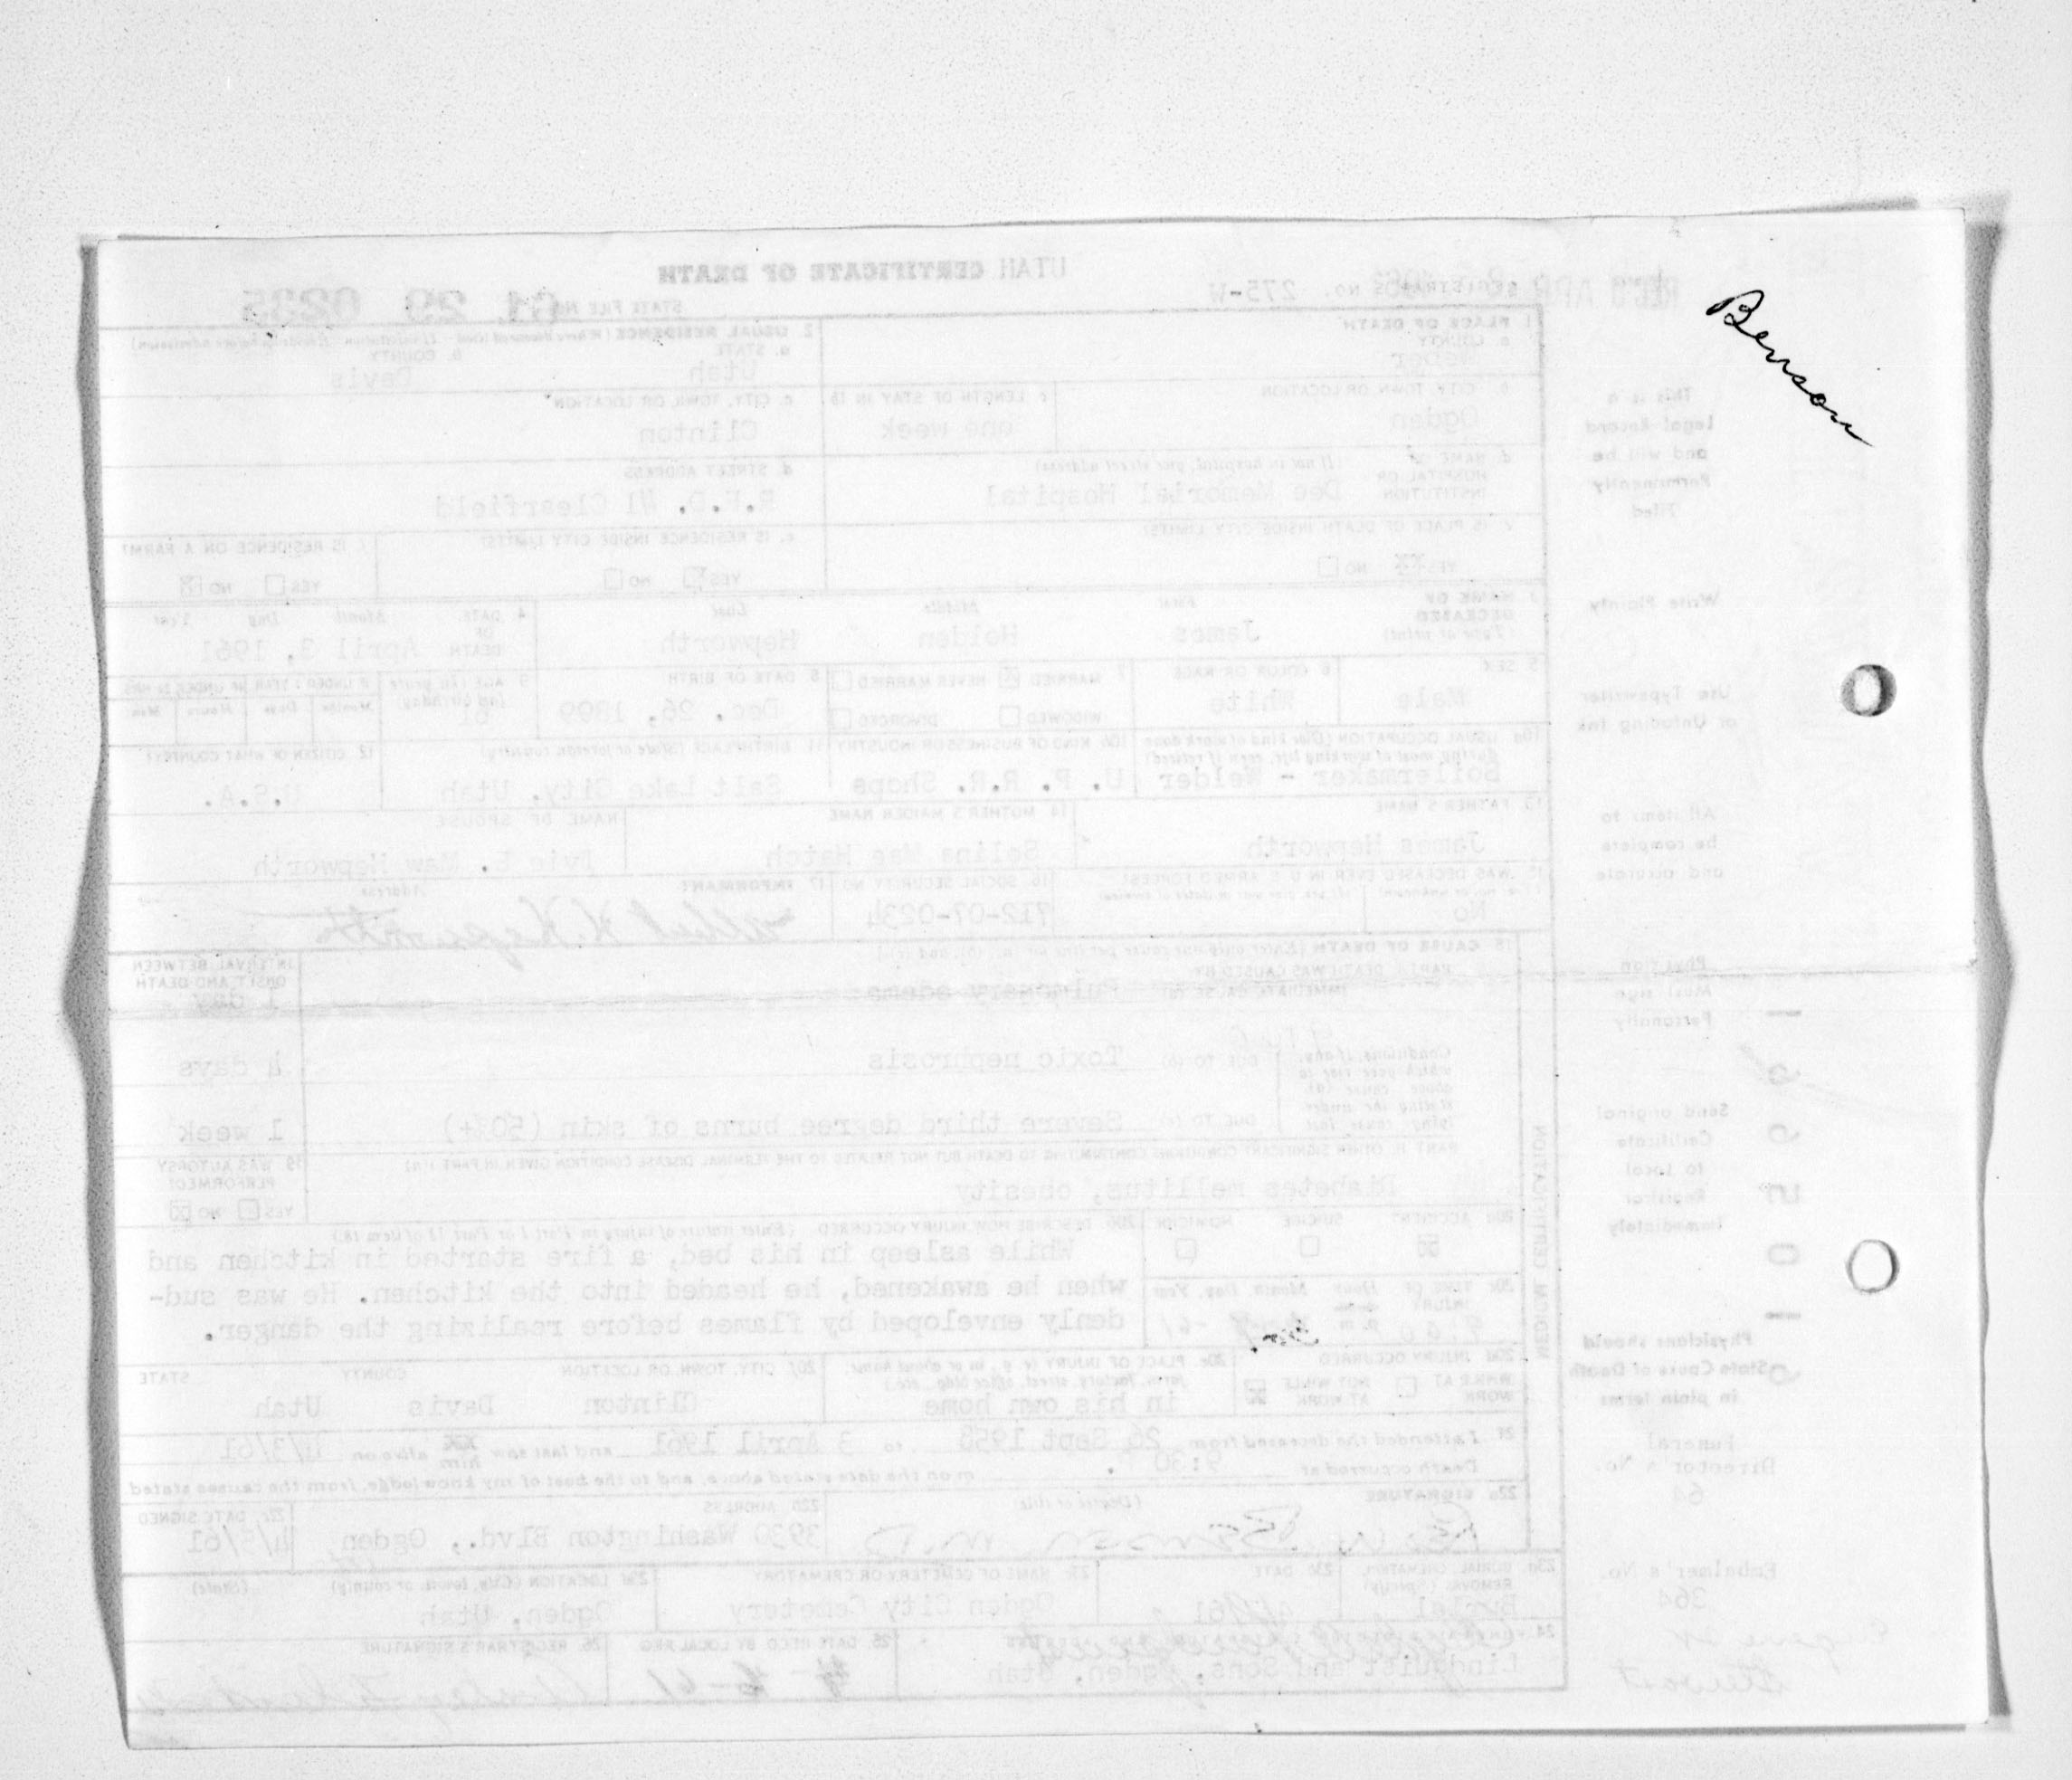 Benson
UTAH CERTIFICATE OF DEATH
REGISTRAR'S NO. 275-W
STATE FILE NO. 61 29 0235
This is a
Legal Record
and will be
Permanently
Filed
1. PLACE OF DEATH
a. COUNTY
Weber
b. CITY, TOWN OR LOCATION
Ogden
c. LENGTH OF STAY IN 1b.
one week
d. NAME OF HOSPITAL OR INSTITUTION (If not in hospital, give street address)
Dee Memorial Hospital
e. IS PLACE OF DEATH INSIDE CITY LIMITS?
YES XX NO
2. USUAL RESIDENCE
a. STATE
Utah
b. COUNTY
Davis
c. CITY, TOWN, OR LOCATION
Clinton
d. STREET ADDRESS
R.F.D. #1 Clearfield
e. IS RESIDENCE INSIDE CITY LIMITS?
YES NO
f. IS RESIDENCE ON A FARM?
YES NO
Write Plainly
3. NAME OF DECEASED (Type or print)
First Middle Last
James Holden Hepworth
4. DATE OF DEATH Month Day Year
April 3, 1961
Use Typewriter
or Unfading Ink
5. SEX
Male
6. COLOR OR RACE
White
7. MARRIED NEVER MARRIED
WIDOWED DIVORCED
8. DATE OF BIRTH
Dec. 26, 1899
9. AGE (In years last birthday)
61
10a. USUAL OCCUPATION (Give kind of work done during most of working life, even if retired)
Boilermaker - Welder
10b. KIND OF BUSINESS OR INDUSTRY
U. P. R.R. Shops
11. BIRTHPLACE (State or foreign country)
Salt Lake City, Utah
12. CITIZEN OF WHAT COUNTRY?
U.S.A.
All items to
be complete
and accurate
13. FATHER'S NAME
James Hepworth
14. MOTHER'S MAIDEN NAME
Selina Mae Hatch
NAME OF SPOUSE
Ivie E. Maw Hepworth
15. WAS DECEASED EVER IN U. S. ARMED FORCES?
No
16. SOCIAL SECURITY NO.
712-07-0234
17. INFORMANT Address
Hepworth
Physician
Must sign
Personally
18. CAUSE OF DEATH
PART I. DEATH WAS CAUSED BY:
IMMEDIATE CAUSE (a) Pulmonary edema
INTERVAL BETWEEN ONSET AND DEATH
1 day
Conditions, if any, which gave rise to above cause (a), stating the under-lying cause last
DUE TO (b) Toxic nephrosis
4 days
DUE TO (c) Severe third degree burns of skin (50%+)
1 week
PART II. OTHER SIGNIFICANT CONDITIONS CONTRIBUTING TO DEATH BUT NOT RELATED TO THE TERMINAL DISEASE CONDITION GIVEN IN PART I(a)
Diabetes mellitus, obesity
19. WAS AUTOPSY PERFORMED?
YES NO
MEDICAL CERTIFICATION
Send original
Certificate
to Local
Registrar
Immediately
20a. ACCIDENT SUICIDE HOMICIDE
20b. DESCRIBE HOW INJURY OCCURRED
While asleep in his bed, a fire started in kitchen and
when he awakened, he headed into the kitchen. He was sud-
denly enveloped by flames before realizing the danger.
20c. TIME OF INJURY Hour Month, Day, Year
Physicians should
State Cause of Death
in plain terms
20d. INJURY OCCURRED
WHILE AT WORK NOT WHILE AT WORK
20e. PLACE OF INJURY
in his own home
20f. CITY, TOWN, OR LOCATION COUNTY STATE
Clinton Davis Utah
21. I attended the deceased from 26 Sept 1958 to 3 April 1961 and last saw him alive on 4/3/61
Death occurred at 9:30 P. m on the date stated above, and to the best of my knowledge, from the causes stated
22a. SIGNATURE (Degree or title)
Benson M.D.
22b. ADDRESS
3930 Washington Blvd., Ogden, Utah
22c. DATE SIGNED
4/5/61
Funeral
Director's No.
64
23a. BURIAL, CREMATION, REMOVAL (Specify)
Burial
23b. DATE
23c. NAME OF CEMETERY OR CREMATORY
Ogden City Cemetery
23d. LOCATION (City, town, or county) (State)
Ogden, Utah
Embalmer's No.
364
Eugene
Stewart
24.
Lindquist and Sons, Ogden, Utah
25. DATE RECD BY LOCAL REG.
26. REGISTRAR'S SIGNATURE